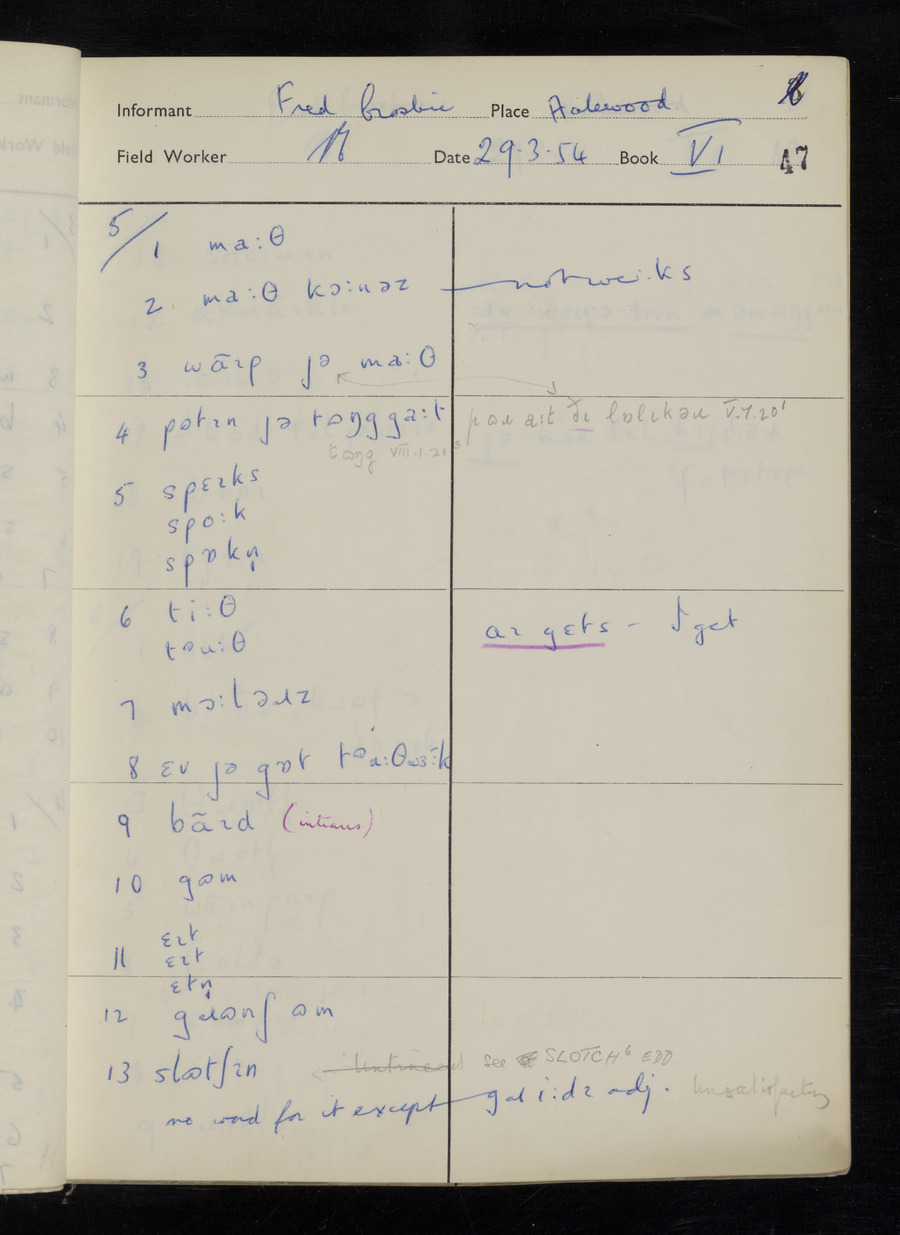 Informant Fred Crosbie Place Halewood
Field Worker Date 29.3.54 Book VI 47
5/1 ma:θ
2 ma:θ kɔ:nəz — not wɪ:ks
3 wãɪp jə ma:θ
4 pʊtɪn jə tʊŋg ga:t
tʊŋg VIII.1.21
V.7.20
5 spɛɪks
spo:k
spɒkn̩
6 ti:θ
aɪ gɛts – I get
7 mɔ:ləɹz
8 ɛv jə gɒt
9 bãɪd (intrans)
10 gʊm
11 ɛɪt
ɛɪt
ɛtn̩
12 gɹʊnʃ ʊm
13 slʊtʃɪn
see SLOTCH⁶ EDD
no word for it except gɹi:dɪ adj. Unsatisfactory